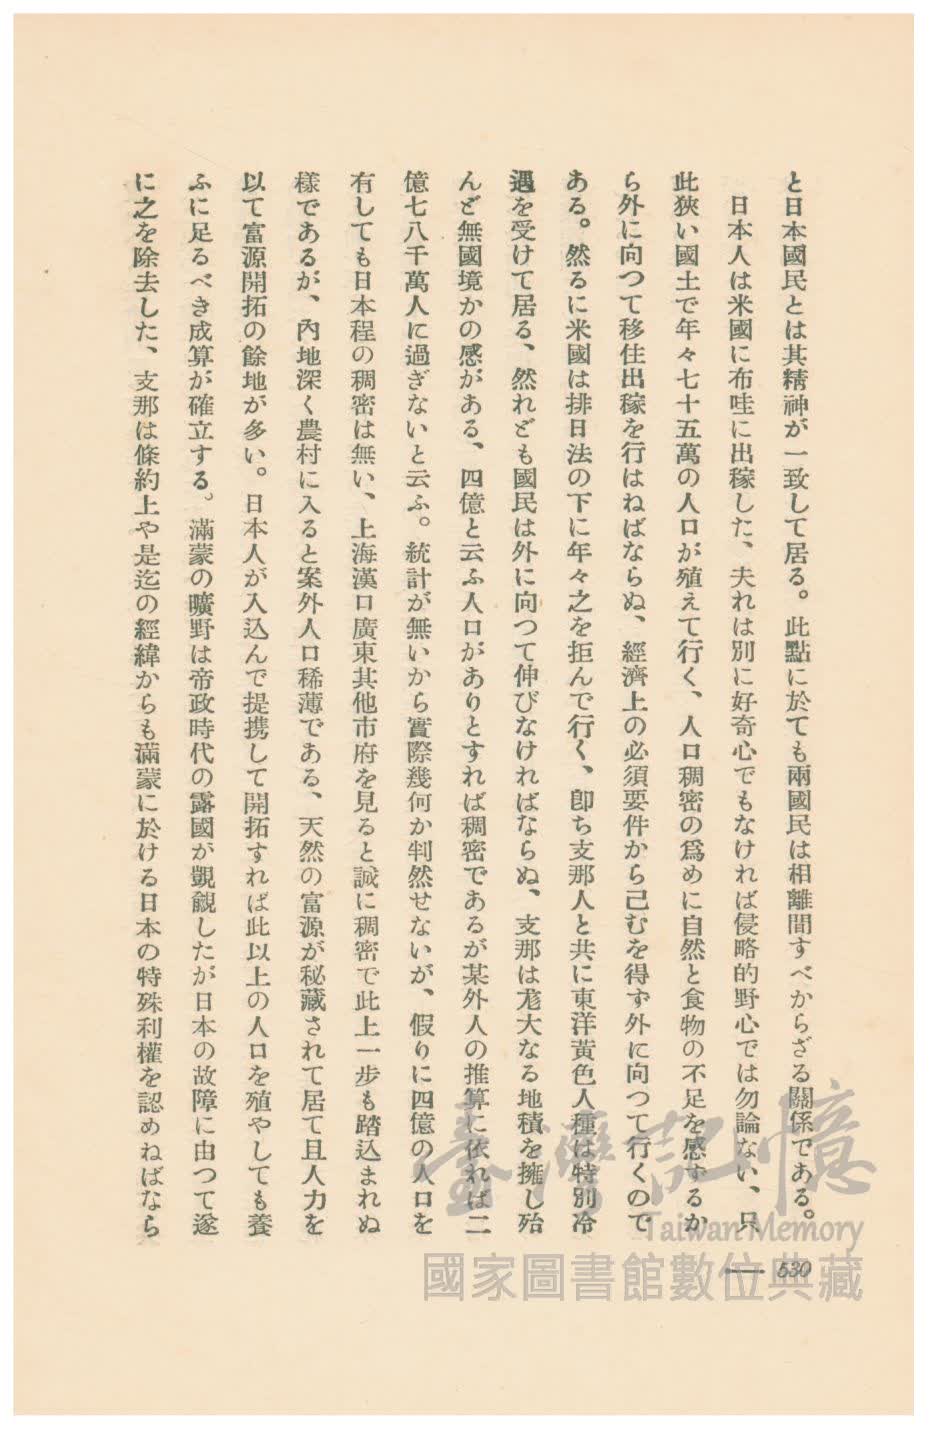 と日本國民とは其精神が一致して居る。此點に於ても兩國民は相離間すべからざる關係である。
日本人は米國に布哇に出稼した、夫れは別に好奇心でもなければ侵略的野心では勿論ない、只
此狹い國土で年々七十五萬の人口が殖えて行く、人口稠密の爲めに自然と食物の不足を感ずるか
ら外に向つて移住出稼を行はねばならぬ、經濟上の必須要件から己むを得ず外に向つて行くので
ある。然るに米國は排日法の下に年々之を拒んで行く、卽ち支那人と共に東洋黃色人種は特別冷
遇を受けて居る、然れども國民は外に向つて伸びなければならぬ、支那は尨大なる地積を擁し殆
んど無國境かの感がある、四億と云ふ人口がありとすれば稠密であるが某外人の推算に依れば二
億七八千萬人に過ぎないと云ふ。統計が無いから實際幾何か判然せないが、假りに四億の人口を
有しても日本程の稠密は無い、上海漢口廣東其他市府を見ると誠に稠密で此上一步も踏込まれぬ
樣であるが、內地深く農村に入ると案外人口稀薄である、天然の富源が秘藏されて居て且人力を
以て富源開拓の餘地が多い。日本人が入込んで提携して開拓すれば此以上の人口を殖やしても養
ふに足るべき成算が確立する。滿蒙の曠野は帝政時代の露國が覬覦したが日本の故障に由つて遂
に之を除去した、支那は條約上や是迄の經緯からも滿蒙に於ける日本の特殊利權を認めねばなら
530
臺灣記憶
Taiwan Memory
國家圖書館數位典藏